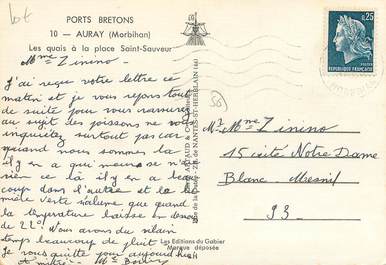 lot
PORTS BRETONS
10 — AURAY (Morbihan)
Les quais à la place Saint-Sauveur
Mme Zinino
J'ai reçue votre lettre ce
matin et je vous réponds tout
de suite pour vous rassurez
au sujet des poissons ne vous
inquietez surtout pas car
quand nous somme la
il y en a qui meure se n'est
rien ce la il y en a beau
coup dans l'autre et la
miele verte
la température baisse en dessous
de 22° Nous avons du vilain
temps beaucoup de pluit
Je vous quitte pour aujourd'hui
Les Editions du Gabier
Marque déposée
0,25
REPUBLIQUE FRANÇAISE
POSTES
50
Mr Mme Zinino
15 cité Notre Dame
Blanc Mesnil
93